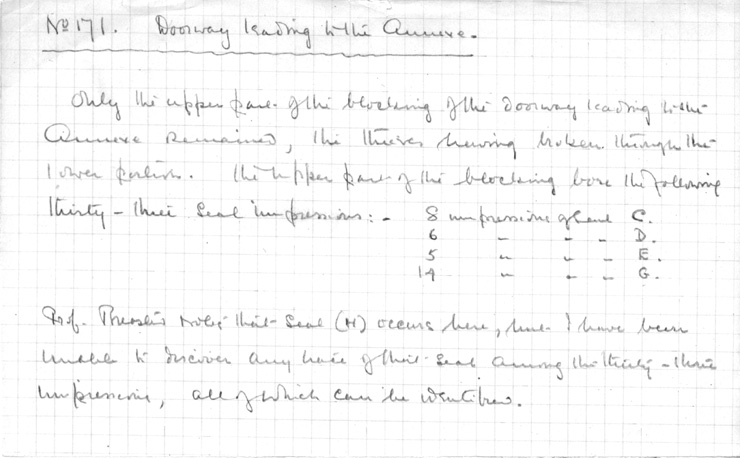 No 171. Doorway leading to the Annexe.
Only the upper part of the blocking of the doorway leading to the
Annexe remained, the thieves having broken through the
lower portion. The upper part of the blocking bore the following
thirty-three seal impressions:- 8 impressions of Seal C.
6 " " " D.
5 " " " E.
14 " " " G.
Prof. Breasted notes that Seal (H) occurs here, but I have been
unable to discover any trace of that seal among the thirty-three
impressions, all of which can be identified.